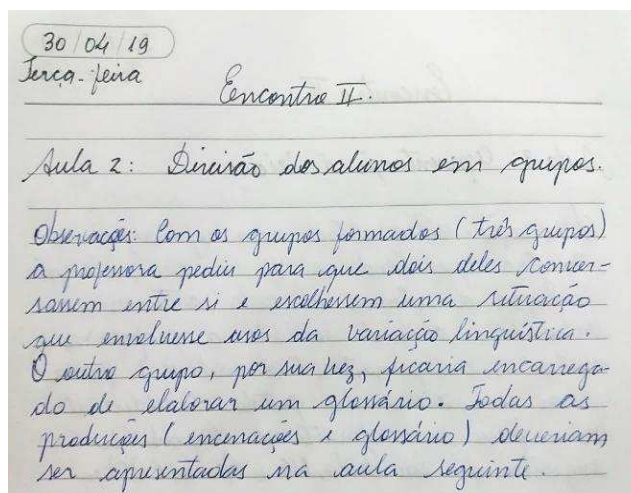 30/04/19
Terça-feira
Encontro II.
Aula 2: Divisão dos alunos em grupos.
Observações: Com os grupos formados (três grupos)
a professora pediu para que dois deles conver-
sassem entre si e escolhessem uma situação
que envolvesse usos da variação linguística.
O outro grupo, por sua vez, ficaria encarrega-
do de elaborar um glossário. Todas as
produções (encenações e glossário) deveriam
ser apresentadas na aula seguinte.